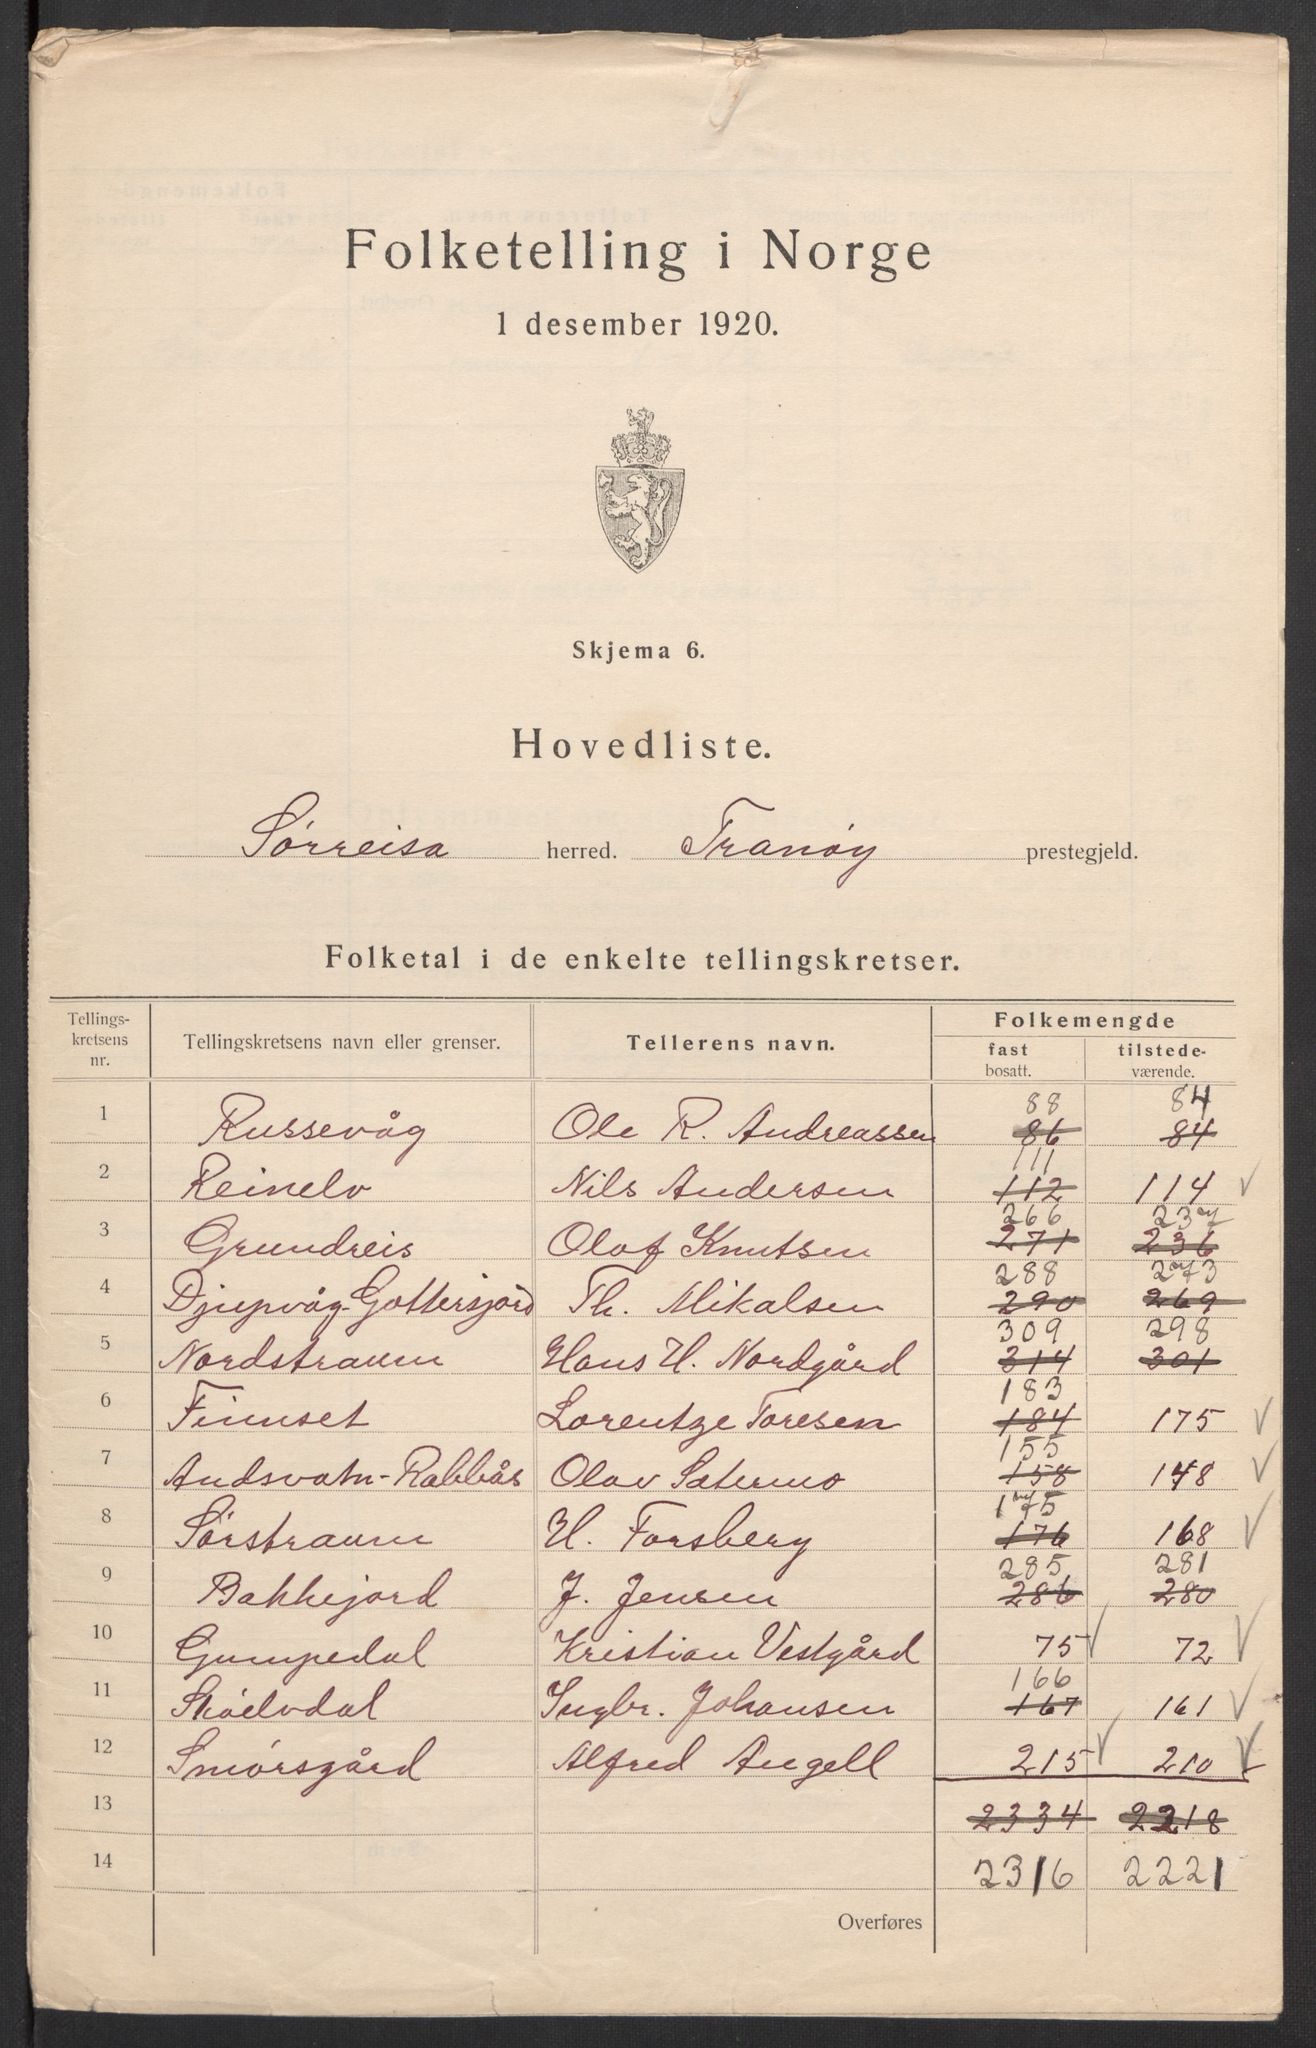 Folketelling i Norge
1 desember 1920.
Skjema 6.
Hovedliste.
Sørreisa herred. Tranøy prestegjeld.
Folketal i de enkelte tellingskretser.
Tellings-
kretsens
nr.
Tellingskretsens navn eller grenser.
Tellerens navn.
Folkemengde
fast
bosatt.
tilstede-
værende.
88 84
1 Russevåg Ole R. Andreassen 86 84
111
2 Reinelv Nils Andersen 112 114 ✓
266 237
3 Grundreis Olof Knutsen 271 236
288 273
4 Djupvåg-Gottersjord Th. Mikalsen 290 269
309 298
5 Nordstraum Hans H. Nordgård 314 301
183
6 Finnset Lorentze Toresen 184 175 ✓
155
7 Andsvatn-Rabbås Olav 158 148 ✓
175
8 Sørstraum H. Forsberg 176 168 ✓
285 281
9 Bakkejord J. Jensen 286 280
10 Gumpedal Kristian Vestgård 75 ✓ 72 ✓
166
11 Skøelvdal Ingbr. Johansen 167 161 ✓
12 Smørsgård Alfred Angell 215 ✓ 210 ✓
13 2334 2218
14 2316 2221
Overføres